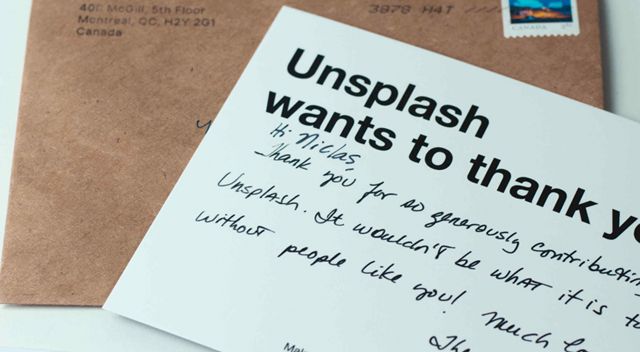 400 McGill, 5th Floor
Montreal, QC, H2Y 2G1
Canada
3878 H4T
CANADA
Unsplash
wants to thank
Hi Niclas,
Thank you for so generously contributing
Unsplash. It wouldn't be what it is
without people like you! Much